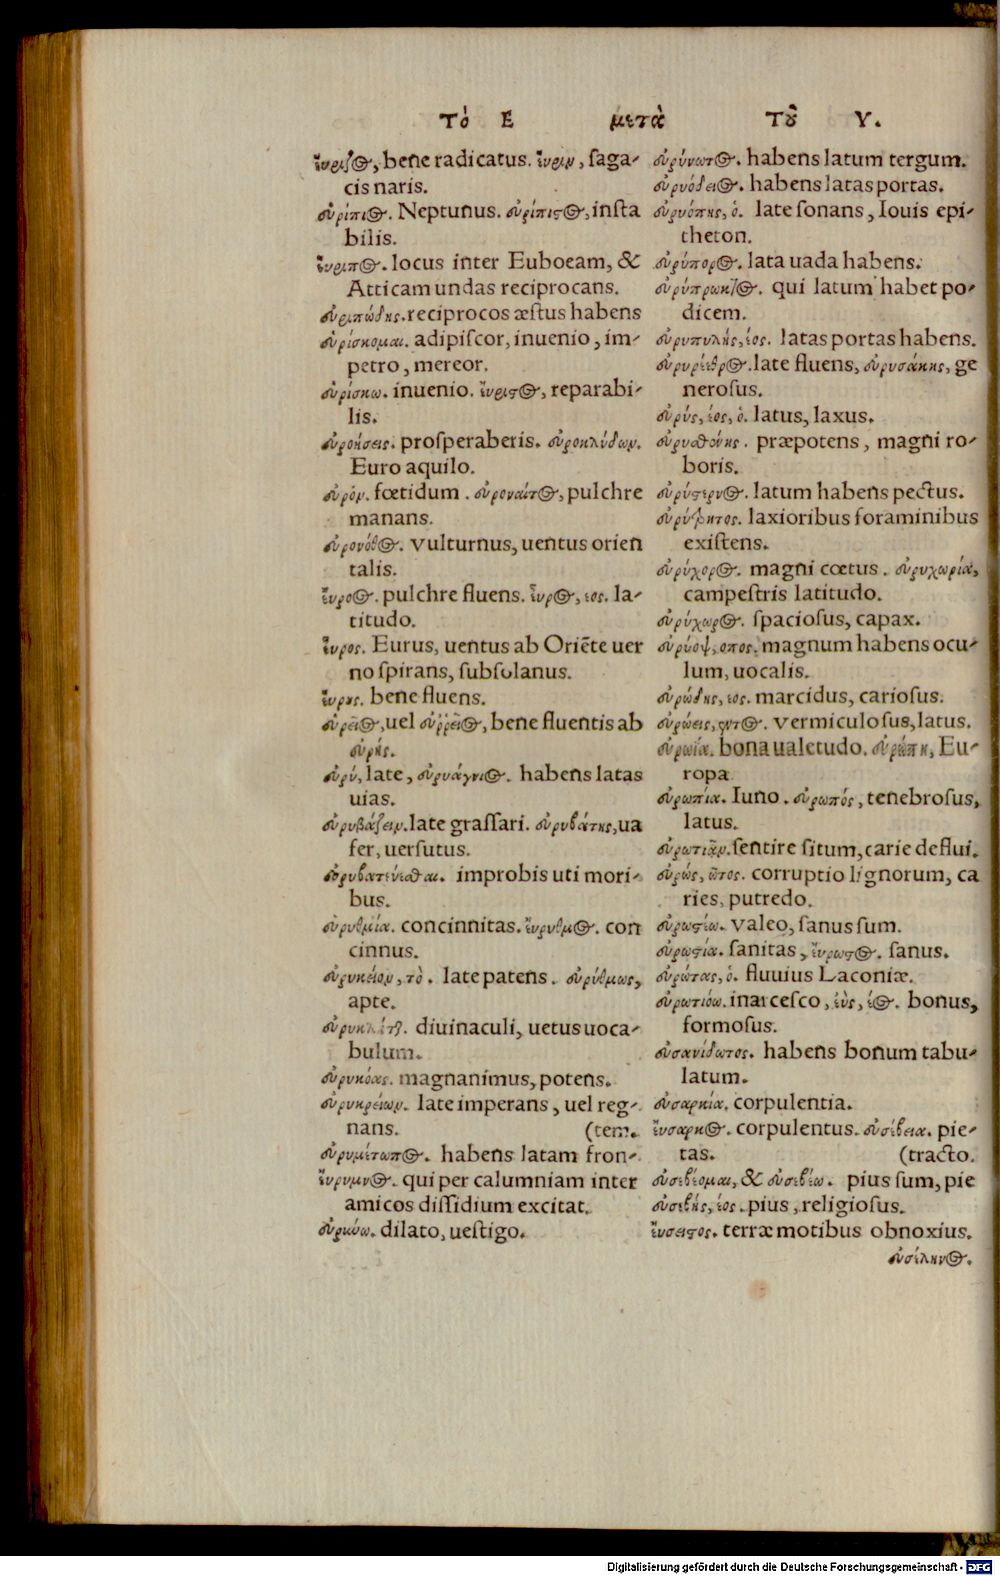 Τὸ Ε μετὰ Τοῦ Υ.
εὔριζος, bene radicatus. εὔριν, saga-
cis naris.
εὐρίπιος. Neptunus. εὐρίπιστος, insta
bilis.
εὔριπος. locus inter Euboeam, &
Atticam undas reciprocans.
εὐριπώδης. reciprocos æstus habens
εὑρίσκομαι. adipiscor, inuenio, im-
petro, mereor.
εὑρίσκω. inuenio. εὔριστος, reparabi-
lis.
εὐροήσεις. prosperaberis. εὐροκλύδων.
Euro aquilo.
εὐρόν. fœtidum. εὐροναίτος, pulchre
manans.
εὐρονόθος. vulturnus, uentus orien
talis.
εὔροος. pulchre fluens. εὖρος, εος. la-
titudo.
εὖρος. Eurus, uentus ab Oriēte uer
no spirans, subsolanus.
εὔρους. bene fluens.
εὐρεῖος, uel εὐρρεῖος, bene fluentis ab
εὐρής.
εὐρύ, late, εὐρυάγυιος. habens latas
uias.
εὐρυβάζειν. late grassari. εὐρυβάτης, ua
fer, uersutus.
εὐρυβατεύεσθαι. improbis uti mori-
bus.
εὐρυθμία. concinnitas. εὔρυθμος. con
cinnus.
εὐρυκείον, τὸ. late patens. εὐρύθμως,
apte.
diuinaculi, uetus uoca-
bulum.
εὐρυκόας. magnanimus, potens.
εὐρυκρείων. late imperans, uel reg-
nans. (tem.
εὐρυμέτωπος. habens latam fron-
εὔρυμνος. qui per calumniam inter
amicos dissidium excitat.
εὐρύνω. dilato, uestigo.
εὐρύνωτος. habens latum tergum.
εὐρυόδειος. habens latas portas.
εὐρυόπης, ὁ. late sonans, Iouis epi-
theton.
εὐρύπορος. lata uada habens.
εὐρύπρωκτος. qui latum habet po-
dicem.
εὐρυπυλής, έος. latas portas habens.
εὐρυρέεθρος. late fluens, εὐρυσάκης, ge
nerosus.
εὐρύς, έος, ὁ. latus, laxus.
εὐρυσθενής. præpotens, magni ro-
boris.
εὐρύστερνος. latum habens pectus.
εὐρύτρητος. laxioribus foraminibus
existens.
εὐρύχορος. magni cœtus. εὐρυχωρία,
campestris latitudo.
εὐρύχωρος. spaciosus, capax.
εὐρύοψ, οπος. magnum habens ocu-
lum, uocalis.
εὐρώδης, εος. marcidus, cariosus.
εὐρώεις, εντος. vermiculosus, latus.
εὐρωία. bona ualetudo. εὐρώπη, Eu-
ropa.
εὐρωπία. Iuno. εὐρωπός, tenebrosus,
latus.
εὐρωτιᾶν. sentire situm, carie deflui.
εὐρώς, ῶτος. corruptio lignorum, ca
ries, putredo.
εὐρωστέω. valeo, sanus sum.
εὐρωστία. sanitas, εὔρωστος. sanus.
εὐρώτας, ὁ. fluuius Laconiæ.
εὐρωτιόω. inarcesco, ἐΰς, ἐός. bonus,
formosus.
εὐσανίδωτος. habens bonum tabu-
latum.
εὐσαρκία. corpulentia.
εὔσαρκος. corpulentus. εὐσέβεια. pie-
tas. (tracto.
εὐσεβέομαι, & εὐσεβέω. pius sum, pie
εὐσεβής, έος. pius, religiosus.
εὔσειστος. terræ motibus obnoxius.
εὐσέληνος.
Digitalisierung gefördert durch die Deutsche Forschungsgemeinschaft - DFG